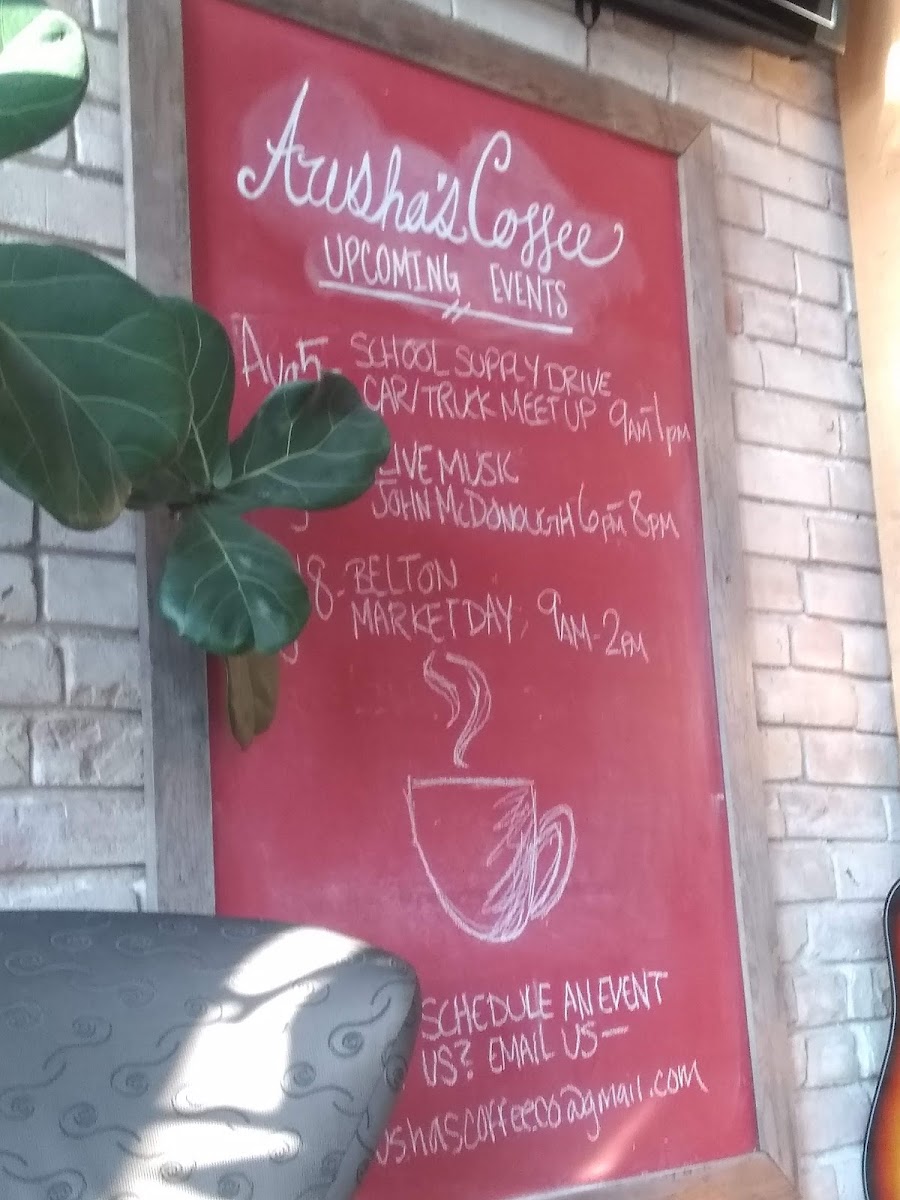 Arusha's Coffee
UPCOMING EVENTS
Aug 5 - SCHOOL SUPPLY DRIVE
CAR/TRUCK MEET UP 9AM-1PM
LIVE MUSIC
JOHN McDONOUGH 6PM-8PM
8 - BELTON
MARKET DAY; 9AM-2PM
SCHEDULE AN EVENT
US? EMAIL US—
ushascoffeeco@gmail.com